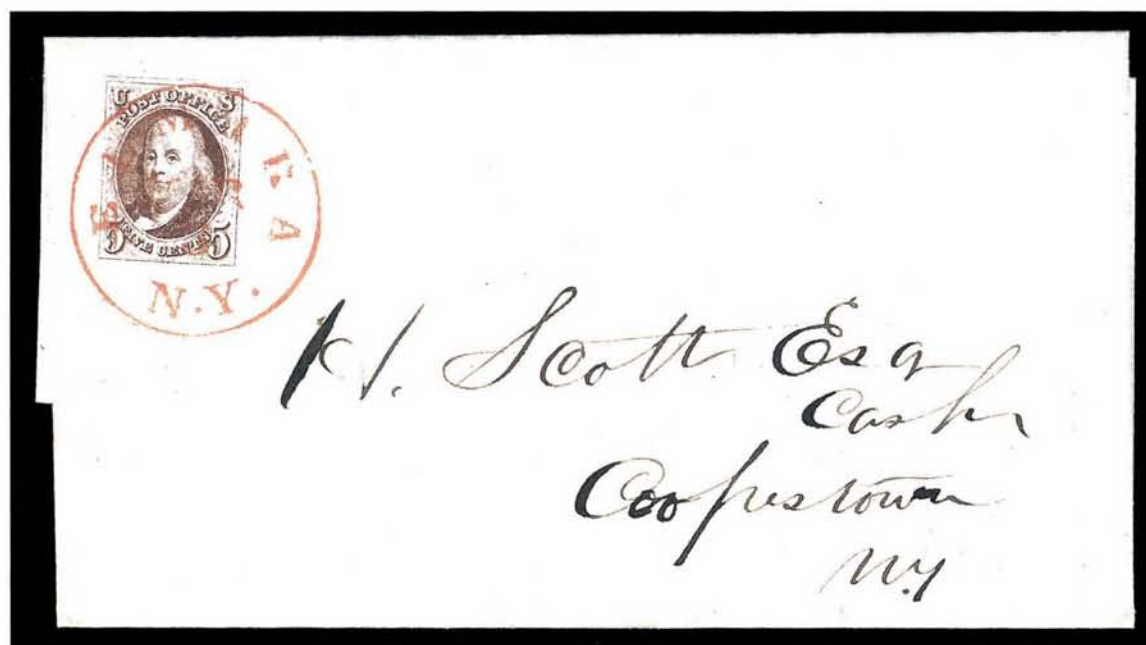 U S
POST OFFICE
FIVE CENTS
5 5
N.Y.
H. Scott Esq
Cashr
Cooperstown
N.Y